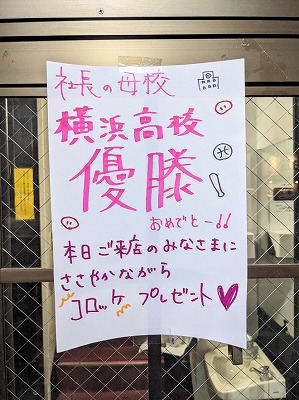 社長の母校
横浜高校
優勝
おめでとー!!
本日ご来店のみなさまに
ささやかながら
コロッケ プレゼント♥